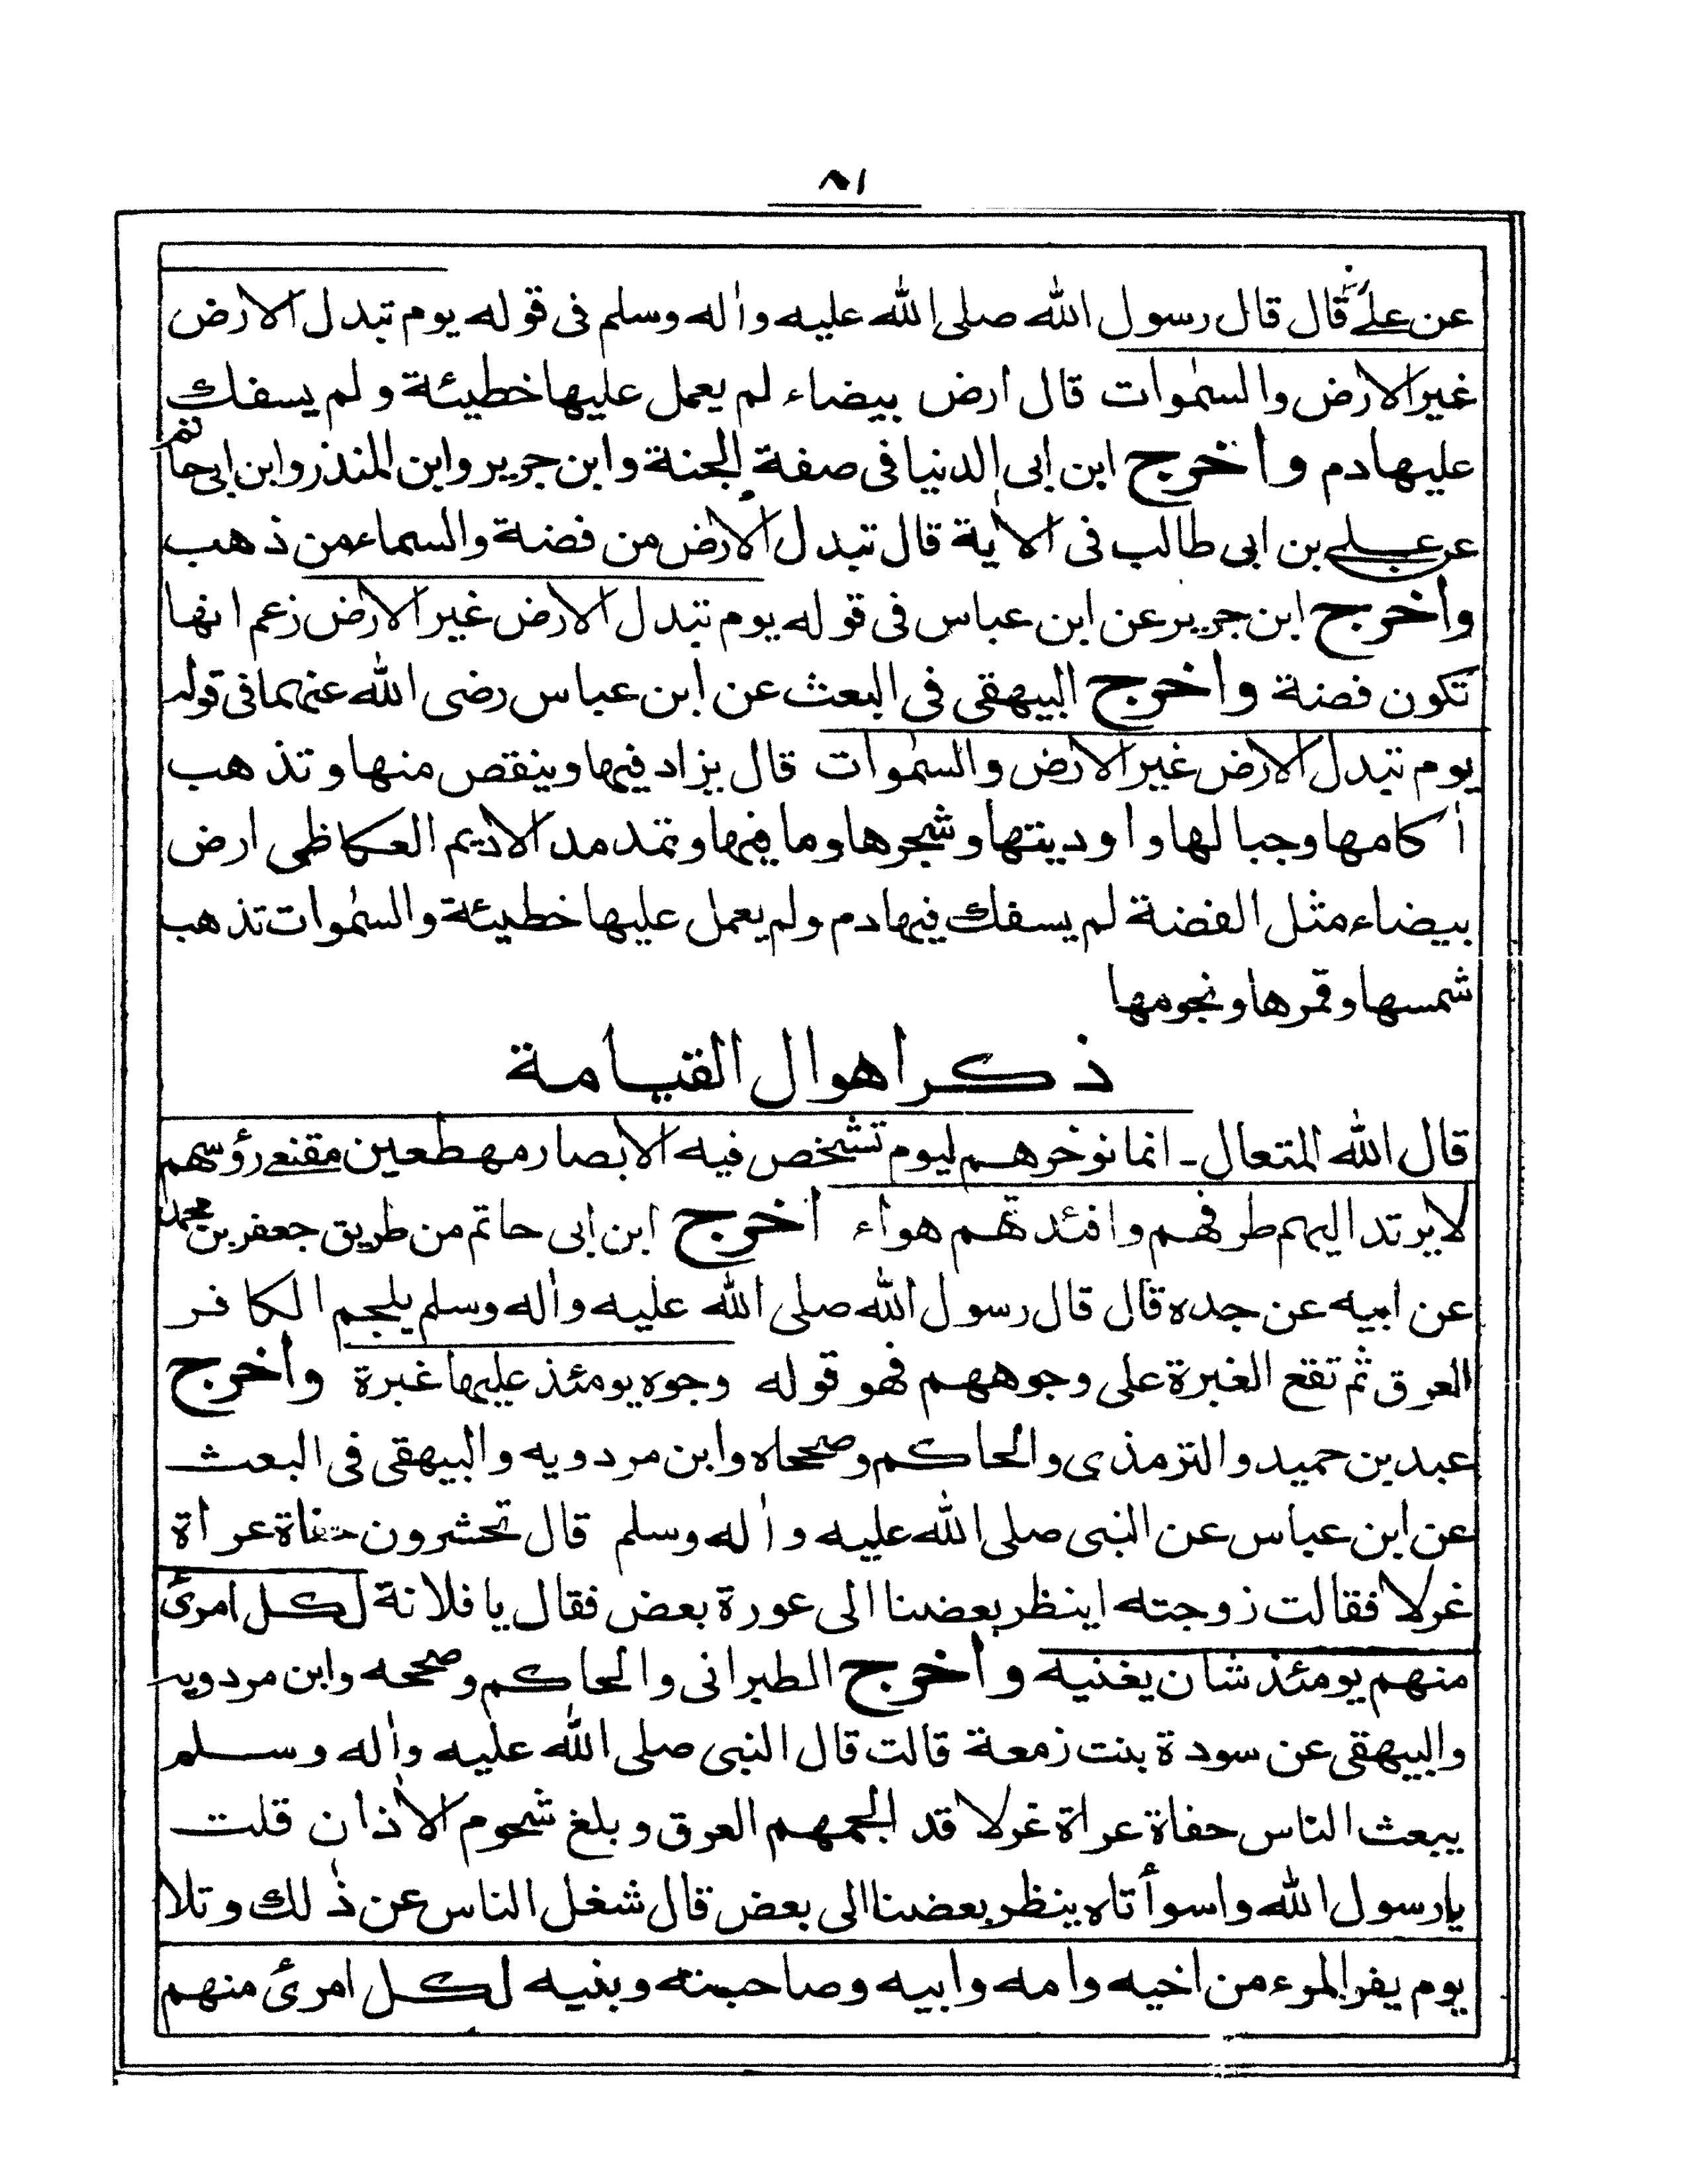 ٨١
عن علے قال قال رسول الله صلى الله عليه واٰله وسلم فى قوله يوم تبدل الارض
غير الارض والسمٰوات قال ارض بيضاء لم يعمل عليها خطيئة ولم يسفك
عليها دم وأخرج ابن ابى الدنيا فى صفة الجنة وابن جرير وابن المنذر وابن ابى حاتم
عن علے بن ابى طالب فى الاٰية قال تبدل الأرض من فضة والسماء من ذهب
وأخرج ابن جرير عن ابن عباس فى قوله يوم تبدل الارض غير الارض زعم انها
تكون فضة وأخرج البيهقى فى البعث عن ابن عباس رضى الله عنهما فى قوله
يوم تبدل الارض غير الارض والسمٰوات قال يزاد فيها وينقص منها وتذهب
اٰكامها وجبالها واوديتها وشجرها وما فيها وتمد مد الاديم العكاظى ارض
بيضاء مثل الفضة لم يسفك فيها دم ولم يعمل عليها خطيئة والسمٰوات تذهب
شمسها وقمرها ونجومها
ذكر اهوال القيامة
قال الله المتعال ـ انما نوخرهم ليوم تشخص فيه الابصار مهطعين مقنعے رؤسهم
لا يرتد اليهم طرفهم وافئدتهم هواء أخرج ابن ابى حاتم من طريق جعفر بن محمد
عن ابيه عن جده قال قال رسول الله صلى الله عليه واٰله وسلم يلجم الكافر
العرق ثم تقع الغبرة على وجوههم فهو قوله وجوه يومئذ عليها غبرة وأخرج
عبد بن حميد والترمذى والحاكم وصححاه وابن مردويه والبيهقى فى البعث
عن ابن عباس عن النبى صلى الله عليه واٰله وسلم قال تحشرون حفاة عراة
غرلا فقالت زوجته اينظر بعضنا الى عورة بعض فقال يا فلانة لكل امرئ
منهم يومئذ شان يغنيه وأخرج الطبرانى والحاكم وصححه وابن مردويه
والبيهقى عن سودة بنت زمعة قالت قال النبى صلى الله عليه واٰله وسلم
يبعث الناس حفاة عراة غرلا قد الجمهم العرق وبلغ شحوم الاٰذان قلت
يارسول الله واسوأتاه ينظر بعضنا الى بعض قال شغل الناس عن ذٰلك وتلا
يوم يفر المرء من اخيه وامه وابيه وصاحبته وبنيه لكل امرئ منهم